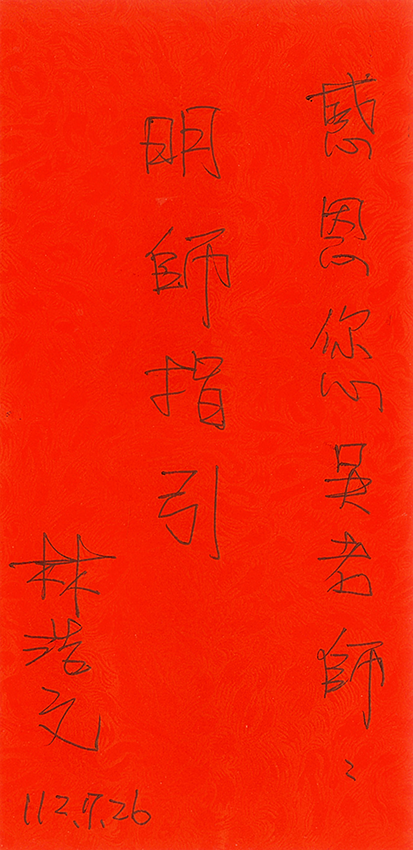 感恩您吳老師：
明師指引
林浩文
112.9.26